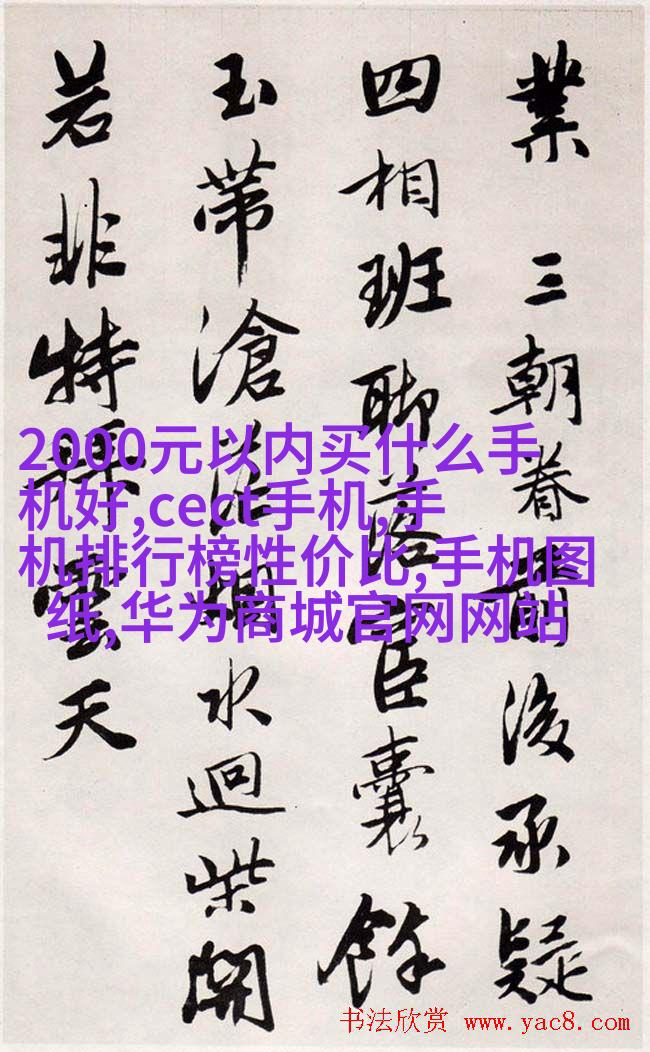 業三朝眷□後承疑
四相班聊落官臣囊餘
玉帶滄茫□水迴柴開
若非特□雲天
2000元以内买什么手
机好,cect手机,手
机排行榜性价比,手机图
纸,华为商城官网网站
书法欣赏 www.yac8.com